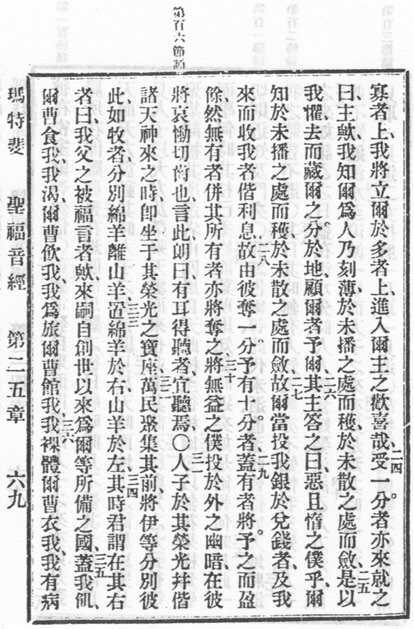 第百六節讀
寡者上我將立爾於多者上進入爾王之歡喜哉受一分者亦來就之 二四
曰主歟我知爾爲人乃刻薄於未播之處而穫於未散之處而斂是以 二五
我懼去而藏爾之分於地顧爾者予爾其主答之曰惡且惰之僕乎爾 二六
知於未播之處而穫於未散之處而斂故爾當投我銀於兌錢者及我 二七
來而收我者偕利息故由彼奪一分予有十分者蓋有者將予之而盈 二八 二九
餘然無有者併其所有者亦將奪之將無益之僕投於外之幽暗在彼 三十
將哀慟切齒也言此朗曰有耳得聽者宜聽焉〇人子於其榮光并偕 三一
諸天神來之時卽坐于其榮光之寶座萬民聚集其前將伊等分別彼 三二
此如牧者分別綿羊離山羊置綿羊於右山羊於左其時君謂在其右 三三 三四
者曰我父之被福言者歟來嗣自創世以來爲爾等所備之國蓋我飢 三五
爾曹食我我渴爾曹飲我我爲旅爾曹館我我裸體爾曹衣我我有病 三六
瑪特斐 聖福音經 第二五章 六九